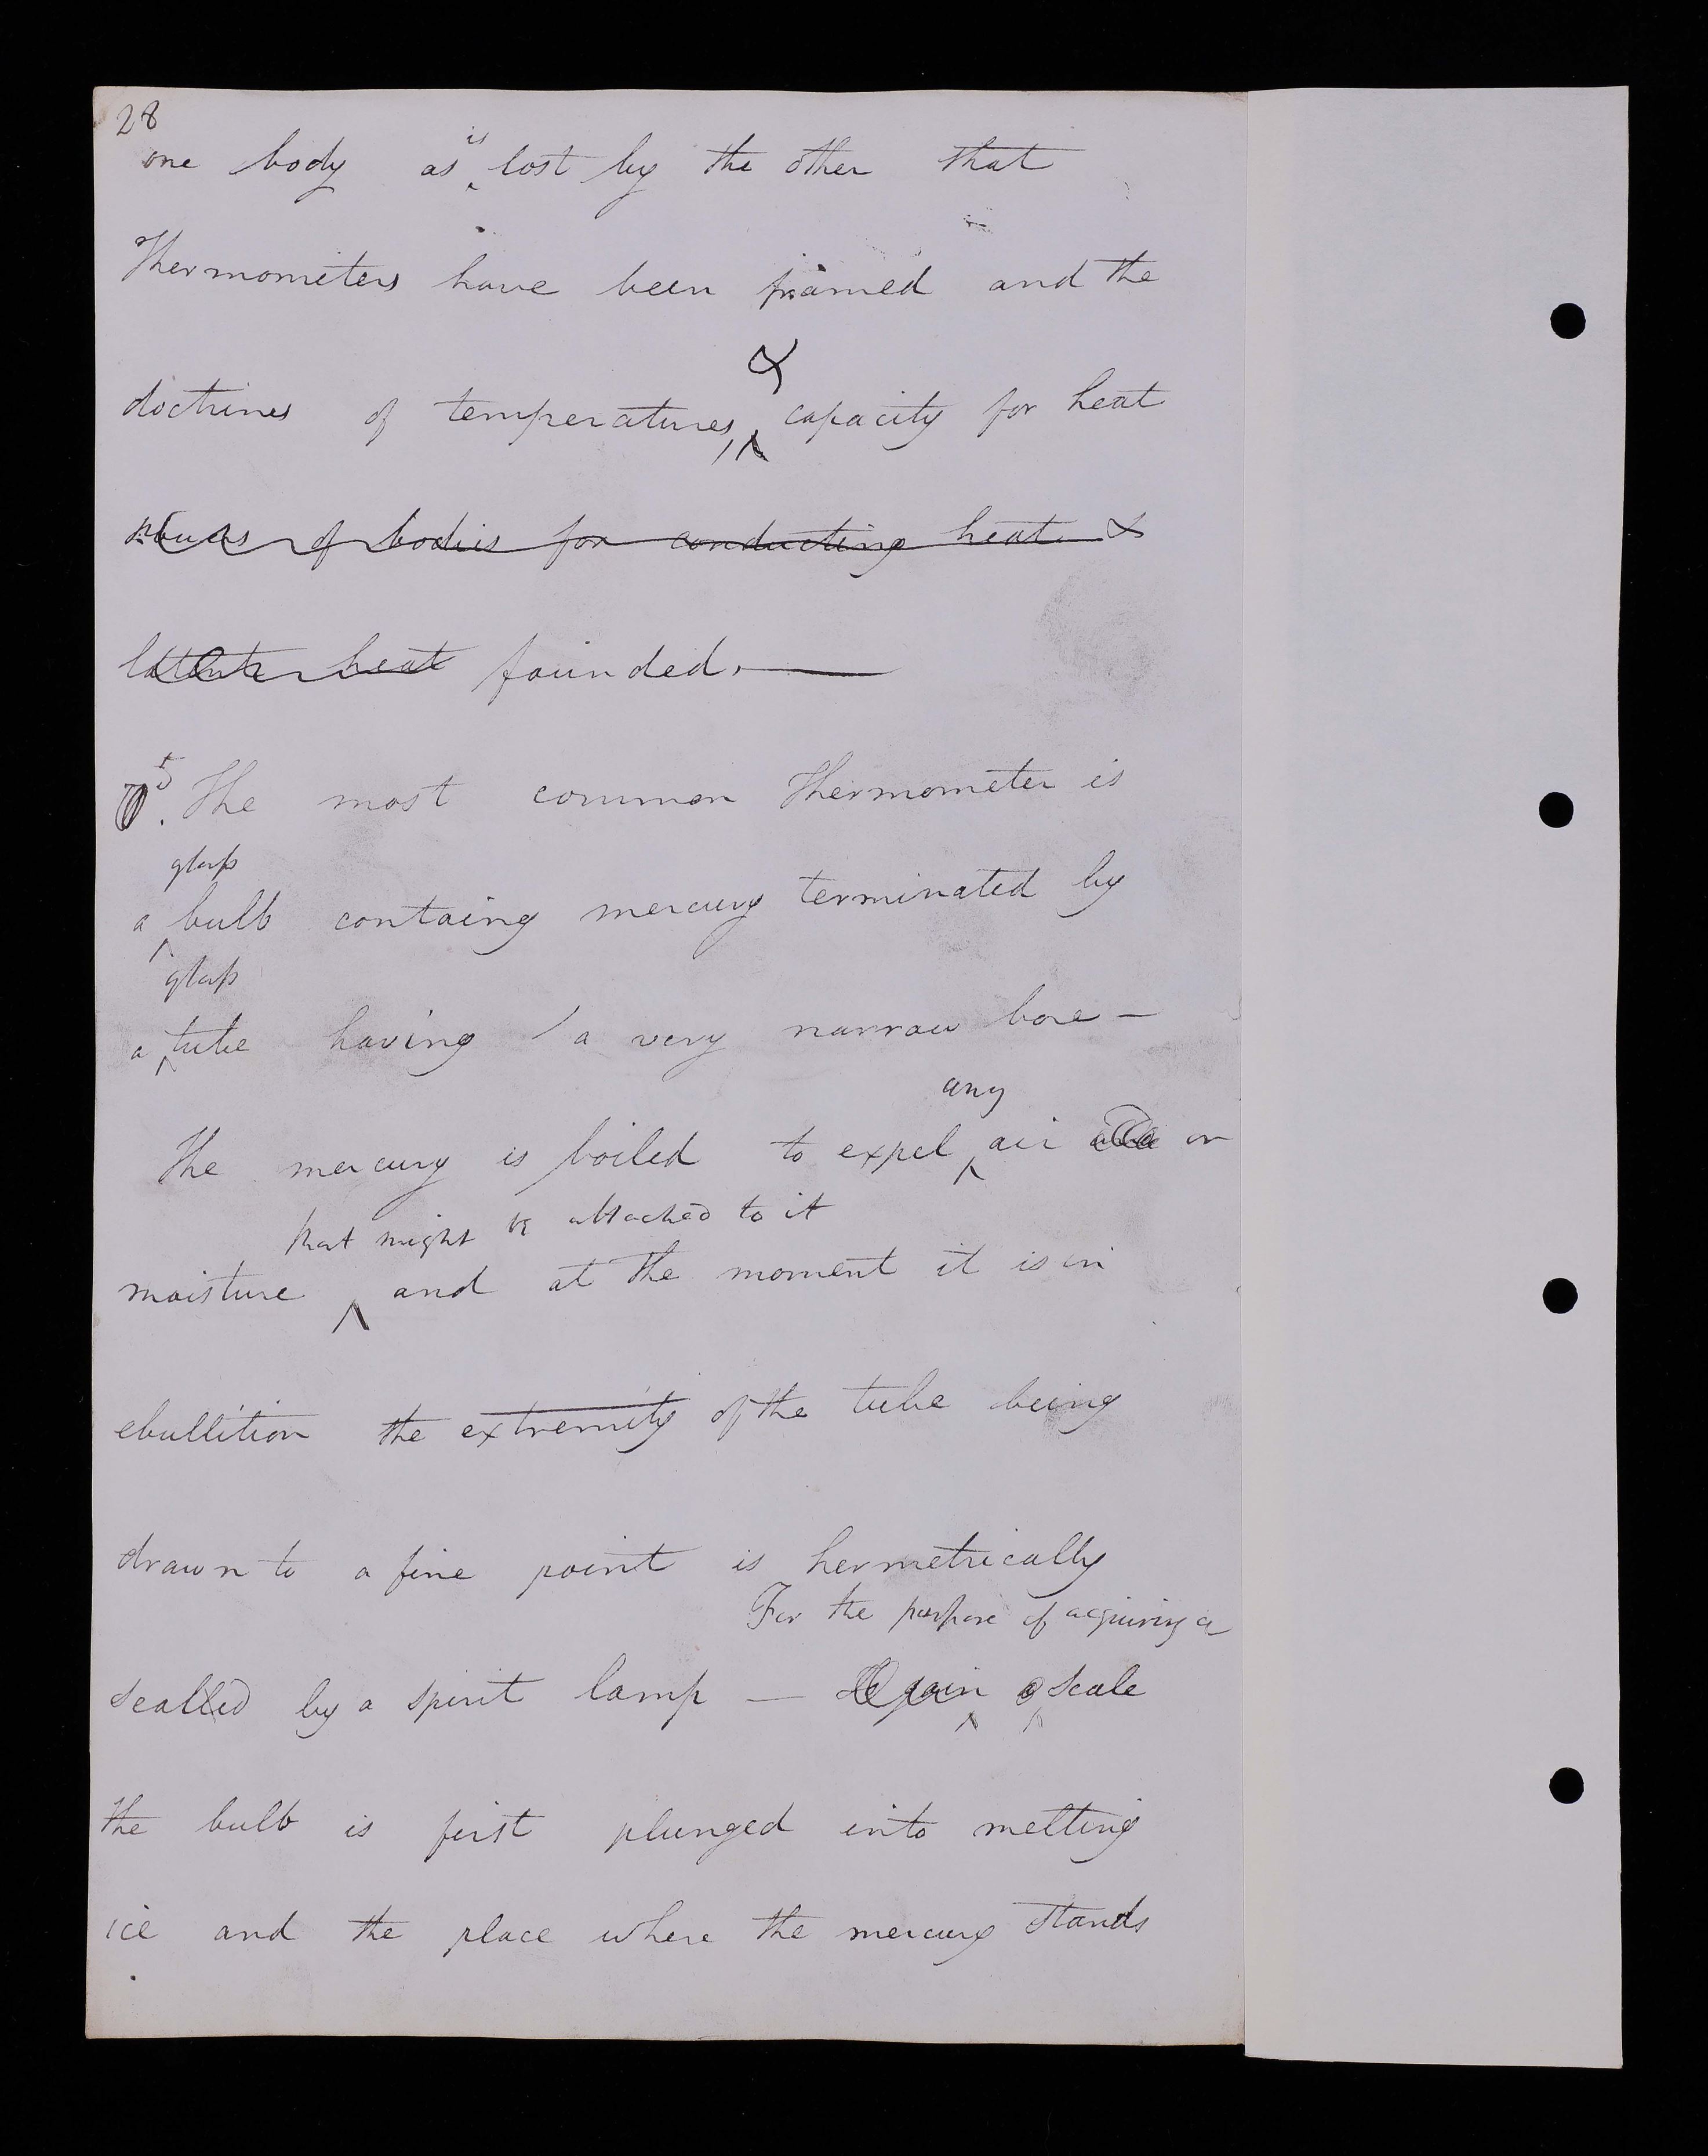 28
is
one body as lost by the other that
Thermometers have been framed and the
&
doctrines of temperatures, capacity for heat
of bodies for conducting heat &
latent heat founded. —
5
The most common Thermometer is
glass
a bulb containg mercury terminated by
glass
a tube having a very narrow bore —
any
The mercury is boiled to expel air or
that might be attached to it
moisture and at the moment it is in
ebullition the extremity of the tube being
drawn to a fine point is hermetrically
For the purpose of acquiring a
sealled by a spirit lamp — gain a scale
the bulb is first plunged into melting
ice and the place where the mercury stands